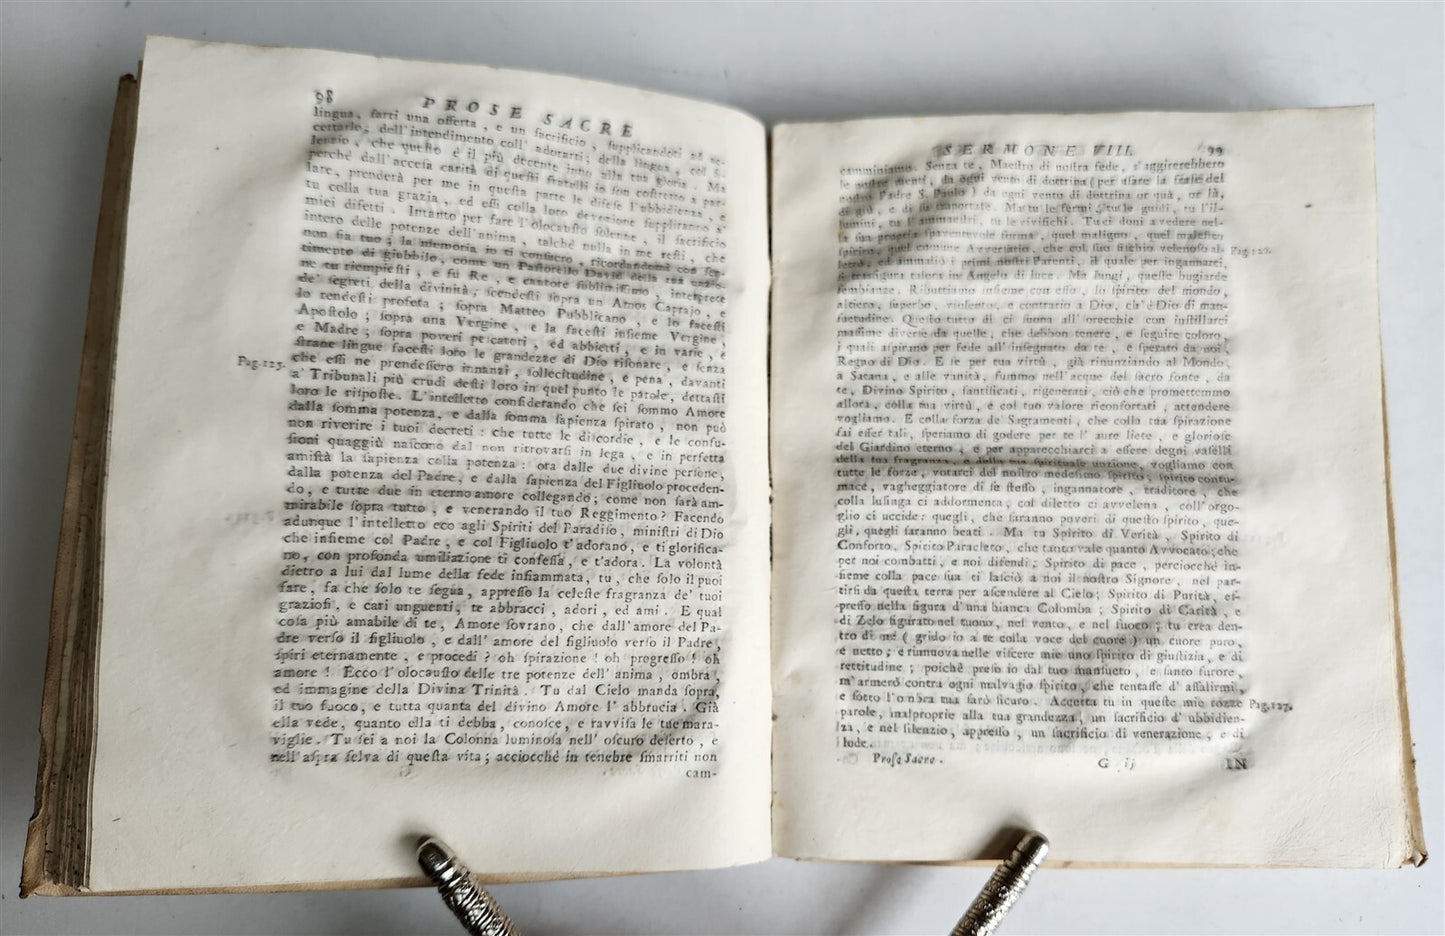 98 PROSE SACRE
lingua, farti una offerta, e un ſacrificio, ſupplicandoti ad ac-
cettarlo, dell'intendimento coll' adorarti; della lingua, col ſi-
lenzio, che queſto è il più decente inno alla tua gloria. Ma
perchè dall'acceſa carità di queſti fratelli io ſon coſtretto a par-
lare, prenderà per me in queſta parte le difeſe l'ubbidienza, e
tu colla tua grazia, ed eſſi colla loro devozione ſuppliranno a'
miei difetti. Intanto per fare l'olocauſto ſolenne, il ſacrificio
intero delle potenze dell'anima, talchè nulla in me reſti, che
non ſia tuo; la memoria io ti conſacro, ricordandomi con ſen-
timento di giubbilo, come un Paſtorello David della tua unzio-
ne tu riempieſti, e fu Re, e cantore ſublimiſſimo, interprete
de' ſegreti della divinità; ſcendeſti ſopra un Amos Caprajo, e
lo rendeſti profeta; ſopra Matteo Pubblicano, e lo faceſti
Apoſtolo; ſopra una Vergine, e la faceſti inſieme Vergine,
e Madre; ſopra poveri peſcatori, ed abbietti, e in varie, e
ſtrane lingue faceſti loro le grandezze di Dio riſonare, e ſenza
Pag.125. che eſſi ne prendeſſero innanzi, ſollecitudine, e pena, davanti
a' Tribunali più crudi deſti loro in quel punto le parole, dettaſti
loro le riſpoſte. L'intelletto conſiderando che ſei ſommo Amore
dalla ſomma potenza, e dalla ſomma ſapienza ſpirato, non può
non riverire i tuoi decreti: che tutte le diſcordie, e le confu-
ſioni quaggiù naſcono dal non ritrovarſi in lega, e in perfetta
amiſtà la ſapienza colla potenza: ora dalle due divine perſone,
dalla potenza del Padre, e dalla ſapienza del Figliuolo proceden-
do, e tutte due in eterno amore collegando; come non ſarà am-
mirabile ſopra tutto, e venerando il tuo Reggimento? Facendo
adunque l'intelletto eco agli Spiriti del Paradiſo, miniſtri di Dio
che inſieme col Padre, e col Figliuolo t'adorano, e ti glorifica-
no, con profonda umiliazione ti confeſſa, e t'adora. La volontà
dietro a lui dal lume della fede infiammata, tu, che ſolo il puoi
fare, fa che ſolo te ſegua, appreſſo la celeſte fragranza de' tuoi
grazioſi, e cari unguenti, te abbracci, adori, ed ami. E qual
coſa più amabile di te, Amore ſovrano, che dall'amore del Pa-
dre verſo il figliuolo, e dall' amore del figliuolo verſo il Padre,
ſpiri eternamente, e procedi? oh ſpirazione! oh progreſſo! oh
amore! Ecco l'olocauſto delle tre potenze dell' anima, ombra,
ed immagine della Divina Trinità. Tu dal Cielo manda ſopra,
il tuo fuoco, e tutta quanta del divino Amore l' abbrucia. Già
ella vede, quanto ella ti debba, conoſce, e ravviſa le tue mara-
viglie. Tu ſei a noi la Colonna luminoſa nell' oſcuro deſerto, e
nell'aſpra ſelva di queſta vita; acciocchè in tenebre ſmarriti non
cam-
SERMONE VIII. 99
camminiamo. Senza te, Maeſtro di noſtra fede, s'aggirerebbero
le noſtre menti, da ogni vento di dottrina (per uſare la fraſe del
noſtro Padre S. Paolo) da ogni vento di dottrina or quà, or là,
di giù, e di ſu traportate. Ma tu le fermi, tu le guidi, tu l'il-
lumini, tu l'ammaeſtri, tu le vivifichi. Tu ci doni a vedere nel-
la ſua propria ſpaventevole forma, quel maligno, quel malefico
ſpirito, quel comune Avverſario, che col ſuo fiſchio velenoſo al- Pag.126.
lettò, ed ammaliò i primi noſtri Parenti, il quale per ingannarci,
ſi trasfigura talora in Angelo di luce. Ma lungi, queſte bugiarde
ſembianze. Rifiuttiamo inſieme con eſſo, lo ſpirito del mondo,
altiero, ſuperbo, violento, e contrario a Dio, ch'è Dio di man-
ſuetudine. Queſto tutto dì ci ſuona all'orecchie con inſtillarci
maſſime diverſe da quelle, che debbon tenere, e ſeguire coloro,
i quali aſpirano per fede all'inſegnato da te, e ſperato da noi,
Regno di Dio. E ſe per tua virtù, già rinunziando al Mondo,
a Satana, e alle vanità, fummo nell'acque del ſacro fonte, da
te, Divino Spirito, ſantificati, rigenerati, ciò che promettemmo
allora, colla tua virtù, e col tuo valore riconfortati, attendere
vogliamo. E colla forza de' Sagramenti, che colla tua ſpirazione
fai eſſer tali, ſperiamo di godere per te l' aure liete, e glorioſe
del Giardino eterno, e per apparecchiarci a eſſere degni vaſelli
della tua fragranza, e della tua ſpirituale unzione, vogliamo con
tutte le forze, votarci del noſtro medeſimo ſpirito; ſpirito contu-
mace, vagheggiatore di ſe ſteſſo, ingannatore, traditore, che
colla luſinga ci addormenta, col diletto ci avvelena, coll'orgo-
glio ci uccide: quegli, che ſaranno poveri di queſto ſpirito, que-
gli, quegli ſaranno beati. Ma tu Spirito di Verità, Spirito di
Conforto, Spirito Paracleto, che tanto vale quanto Avvocato; che
per noi combatti, e noi difendi; Spirito di pace, perciocchè in-
ſieme colla pace ſua ti laſciò a noi il noſtro Signore, nel par-
tirſi da queſta terra per aſcendere al Cielo; Spirito di Purità, eſ-
preſſo nella figura d'una bianca Colomba; Spirito di Carità, e
di Zelo figurato nel tuono, nel vento, e nel fuoco; tu crea den-
tro di me (grido io a te colla voce del cuore) un cuore puro,
e netto; e rinnuova nelle viſcere mie uno ſpirito di giuſtizia, e di
rettitudine; poichè preſo io dal tuo manſueto, e ſanto furore,
m'armerò contra ogni malvagio ſpirito, che tentaſſe d' aſſalirmi,
e ſotto l'ombra tua ſarò ſicuro. Accetta tu in queſte mie rozze Pag.127.
parole, inalproprie alla tua grandezza, un ſacrificio d' ubbidien-
za, e nel ſilenzio, appreſſo, un ſacrificio di venerazione, e di
lode.
Proſe Sacre. G ij IN